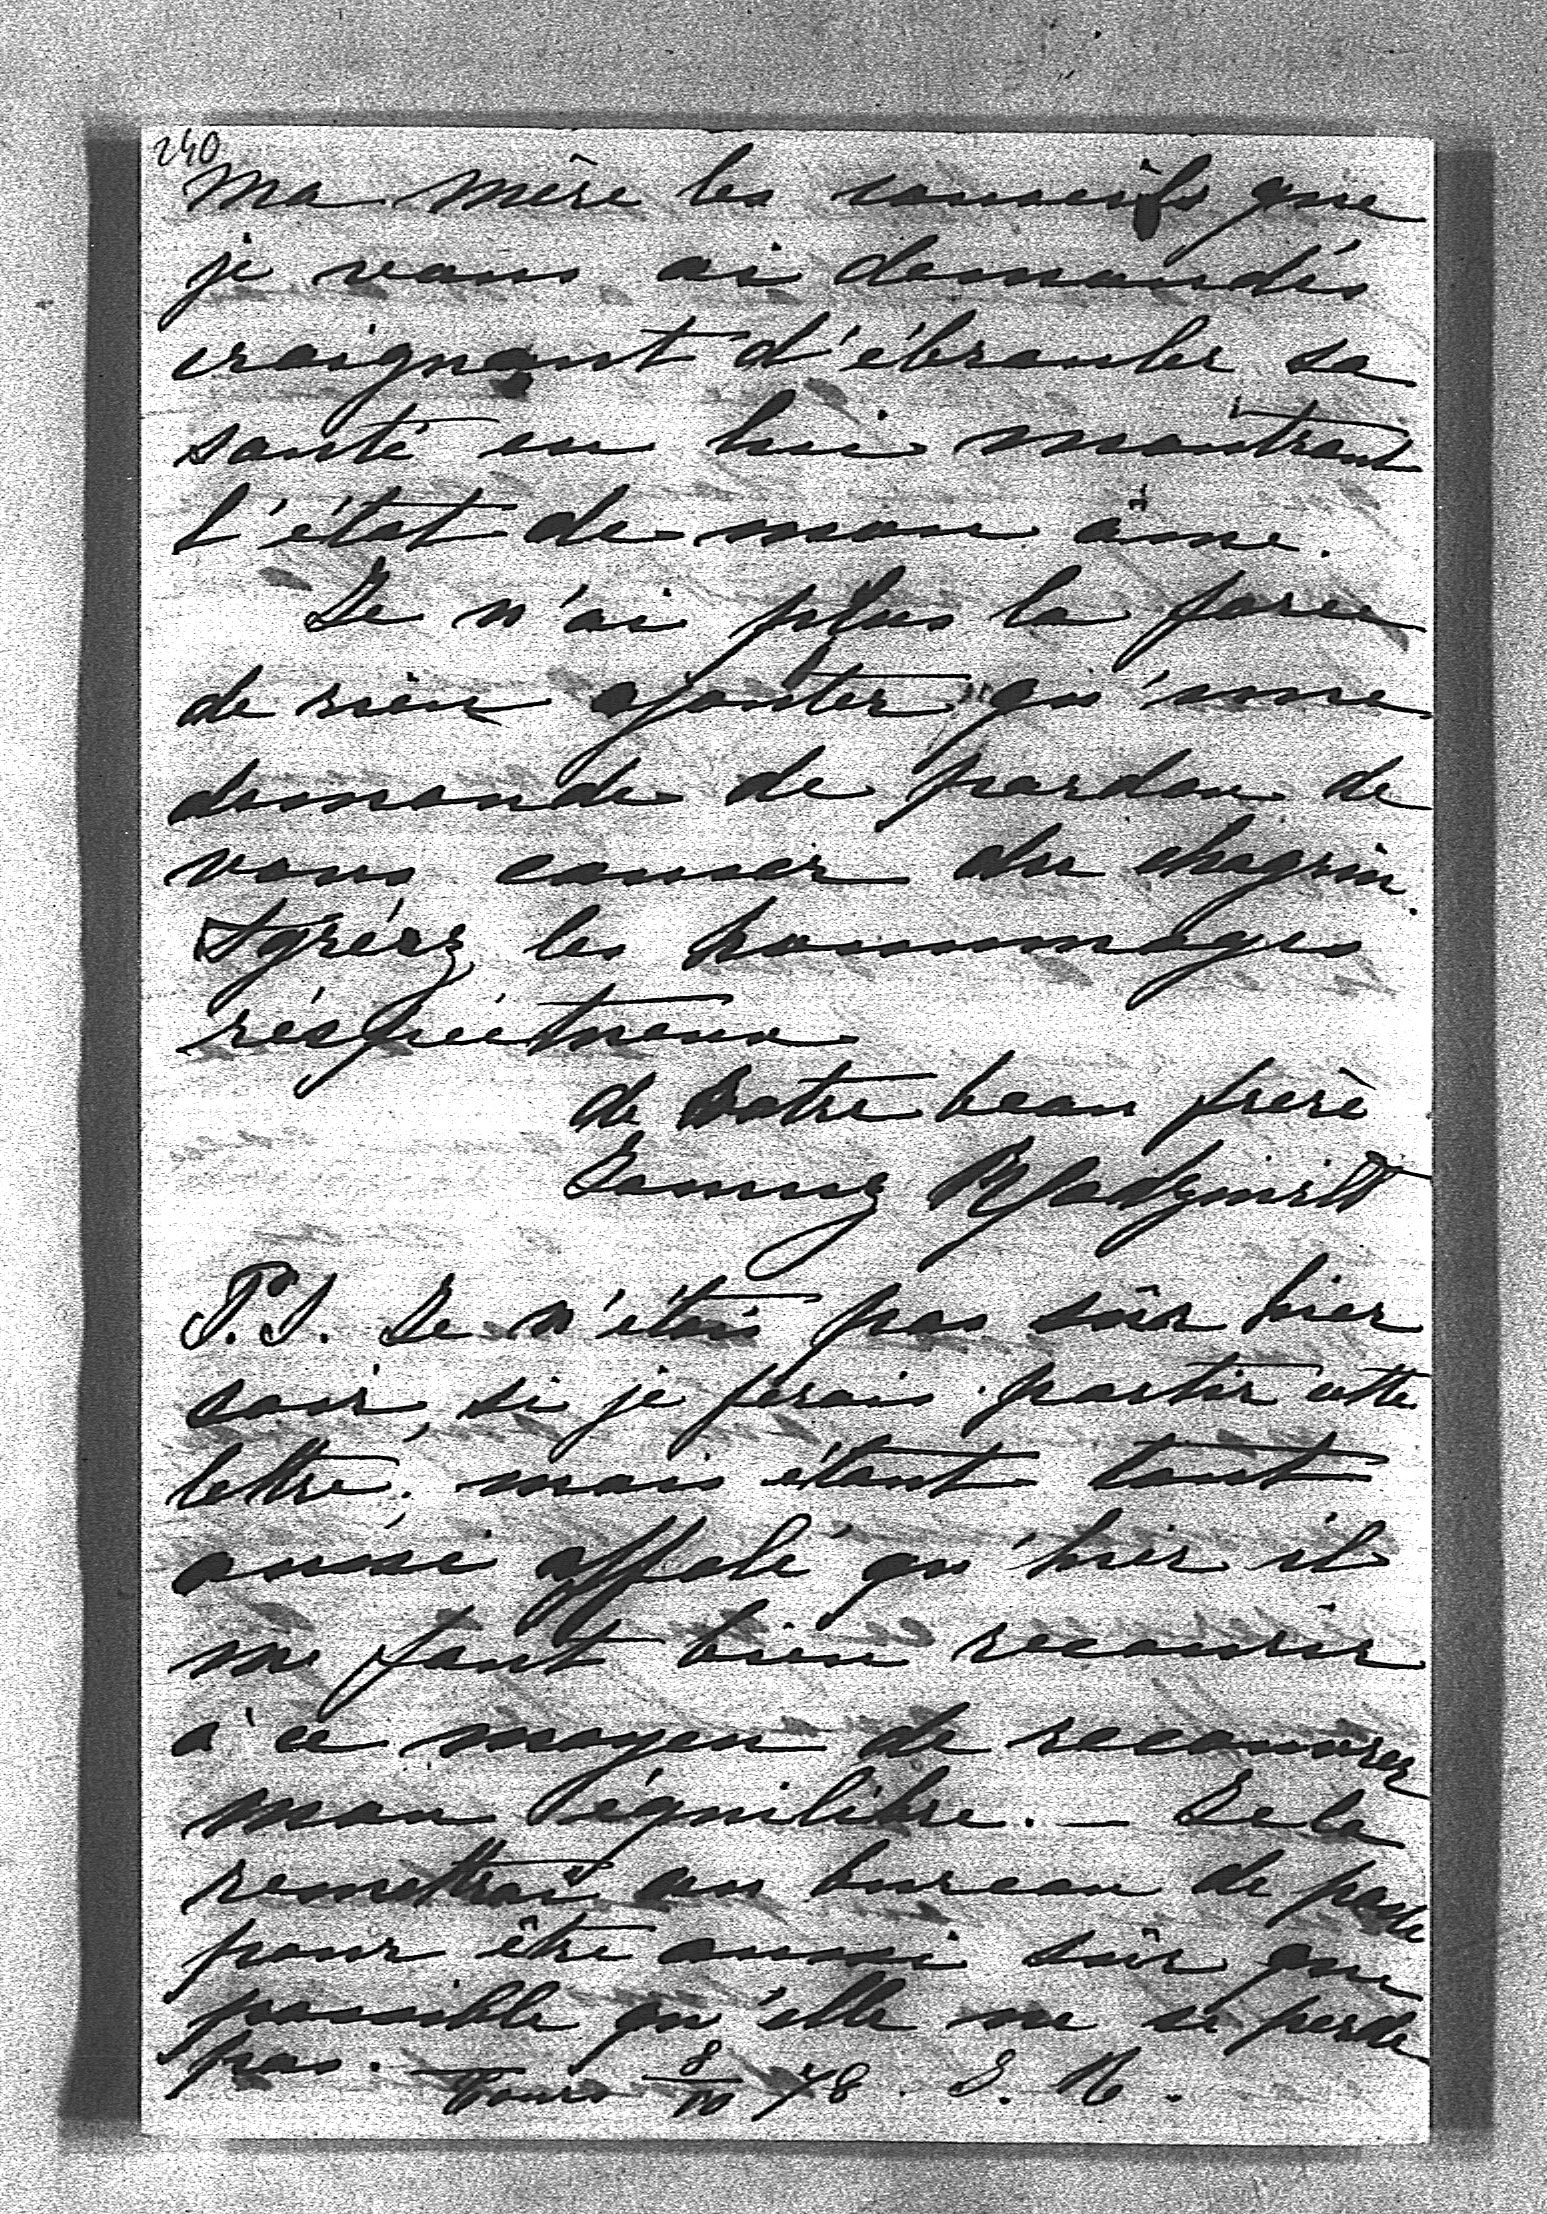 240
ma mère les conseils que
je vous ai demandés
craignant d'ébranler sa
santé en lui montrant
l'état de mon âme.
Je n'ai plus la force
de rien ajouter qu'une
demande de pardon de
vous causer du chagrin.
Agréez les hommages
réspéctueux
de Votre beau frère
Janusz RRadziwill
P.S. Je n'étais pas sûr hier
soir, si je ferais partir cette
lettre, mais étant tout
aussi affolé qu'hier il
me faut bien recourir
à ce moyen de recouvrer
mon équilibre. — Je la
remettrai au bureau de poste
pour être aussi sûr que
possible qu'elle ne se perde
pas. — Tours 8/10 78. J. R.